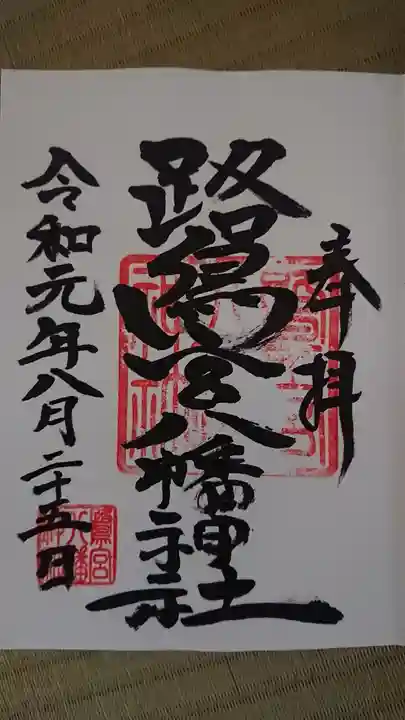 奉拝
鷺宮八幡神社
令和元年八月二十五日